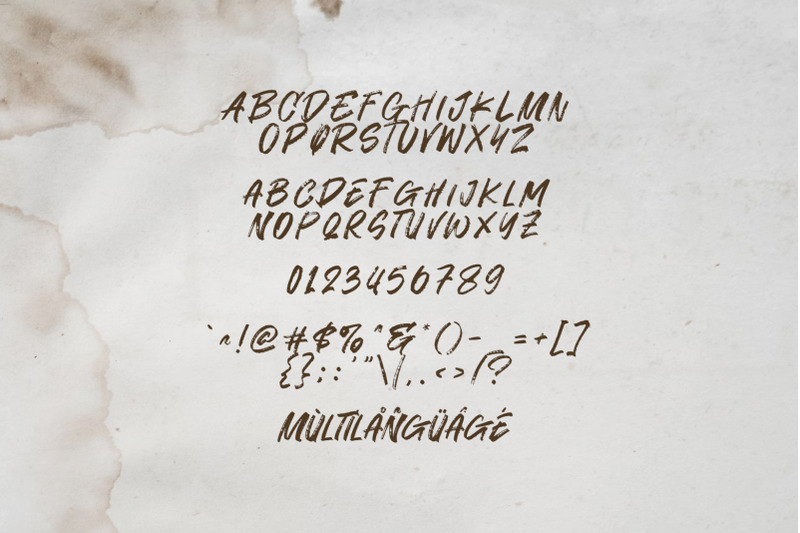 ABCDEFGHIJKLMN
OPQRSTUVWXYZ
ABCDEFGHIJKLM
NOPQRSTUVWXYZ
0123456789
`~!@#$%^&*()-_=+[]
{};:'"\|,.<>/?
MÙLTÏLÅÑGÜÂGÉ